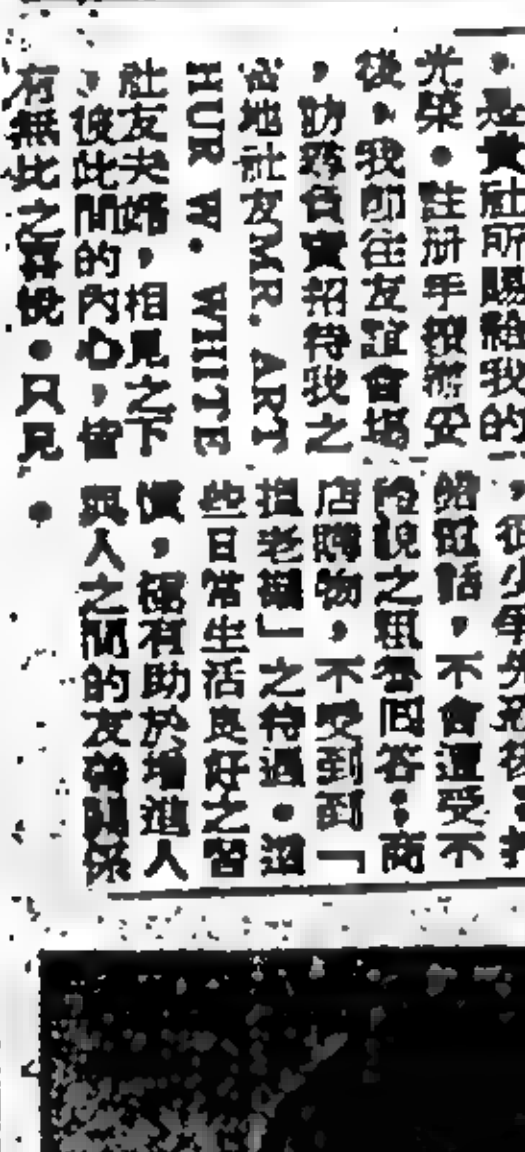 是貴社所賜給我的
光榮。註册手續辦妥
後，我卽往友誼會場
，訪尋負責招待我之
當地社友MR. ART
HUR W. WHITE
社友夫婦，相見之下
，彼此間的內心，皆
有無此之喜悅。只見
，很少爭先恐後。打
給電話，不會遭受不
之粗魯回答；商
店購物，不受到到「
」之待遇。這
些日常生活良好之習
慣，確有助於增進人
與人之間的友誼關係
。